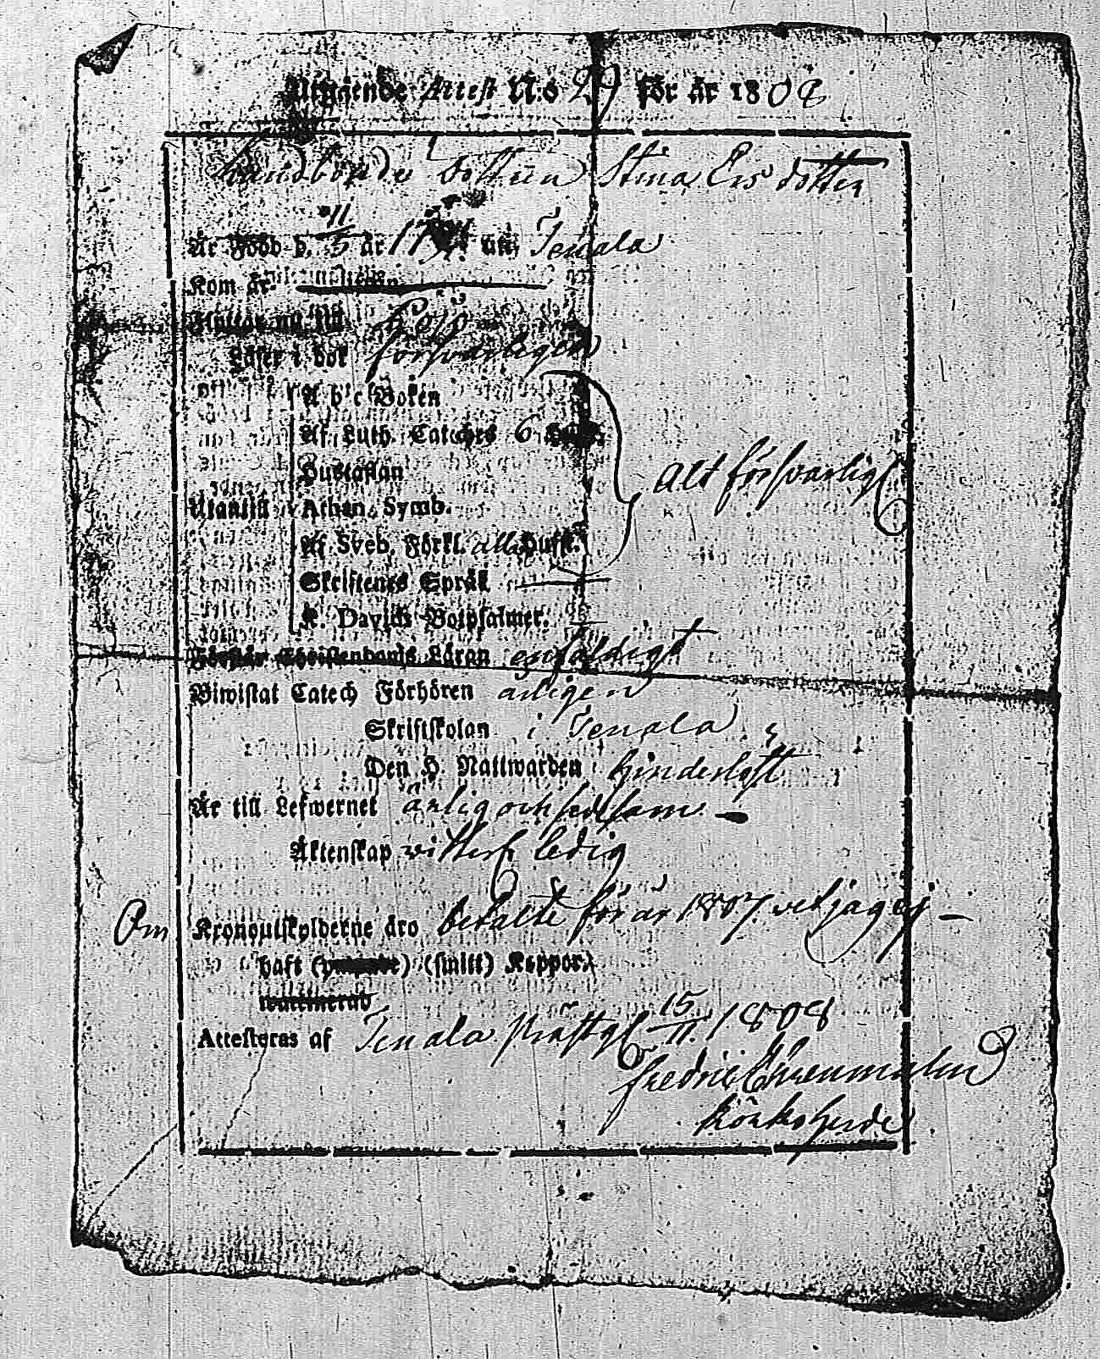 Utgående Attest N:o 29 för år 1808
Landbonde dottren Stina Ersdotter
Är Född d. 11/5 år 17 uti Tenala
Kom år
Flyttar nu till Lojo
Läser i bok försvarligen
A b c Boken
Af Luth. Cateches 6
Hustaflan
Alt försvarligt
Utantill Athan. Symb.
Af Sveb. Förkl. alla Hufst.
Skriftenes Språk
K. Davids Botpsalmer.
Förstår Christendoms Läran enfaldigt
Biwistat Catech Förhören årligen
Skriftskolan i Tenala
Den H. Nattwarden hinderslöst
Är till Lefwernet ärlig och sedesam
Äktenskap vitterl. ledig
Om Kronoutskylderne äro betalte för år 1807 vet jag ej
haft () (smitt) Koppor.
waccinerad
Attesteras af Tenala Prästgl 15/11. 1808
Fredric Ehrenmalm
Kyrkoherde